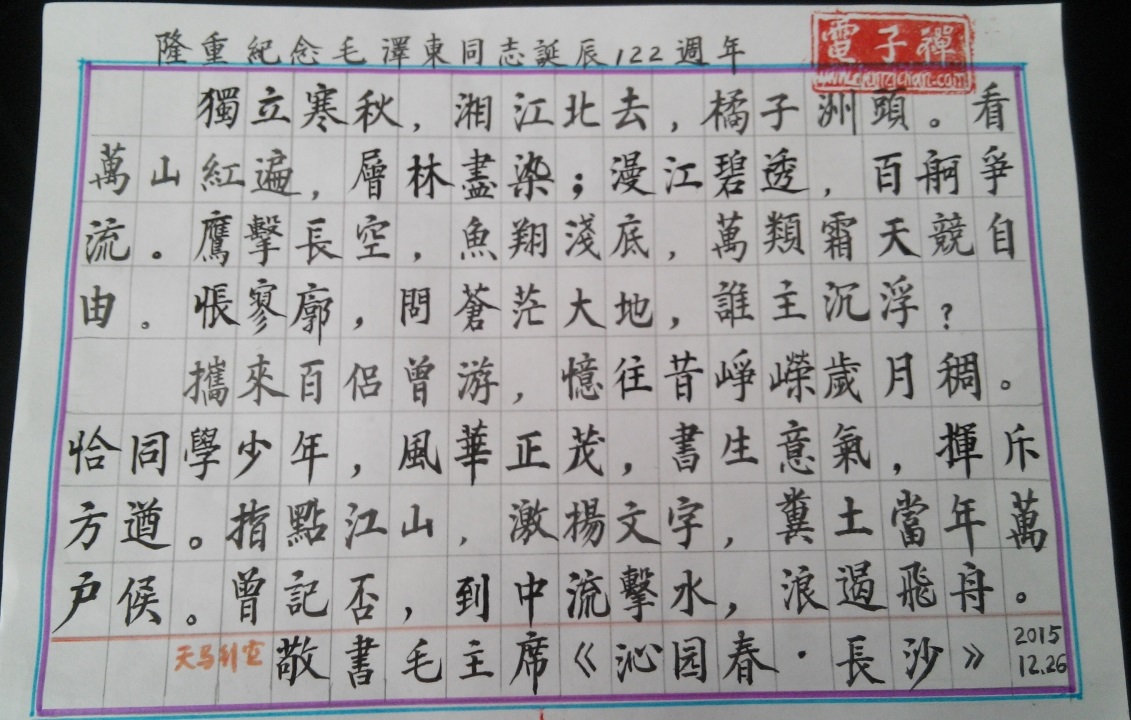 隆重紀念毛澤東同志誕辰122週年
電子禪
獨立寒秋，湘江北去，橘子洲頭。看
萬山紅遍，層林盡染；漫江碧透，百舸爭
流。鷹擊長空，魚翔淺底，萬類霜天競自
由。悵寥廓，問蒼茫大地，誰主沉浮？
攜來百侶曾游，憶往昔崢嶸歲月稠。
恰同學少年，風華正茂，書生意氣，揮斥
方遒。指點江山，激揚文字，糞土當年萬
戶侯。曾記否，到中流擊水，浪遏飛舟。
天马利空
敬書毛主席《沁园春·長沙》
2015
12.26